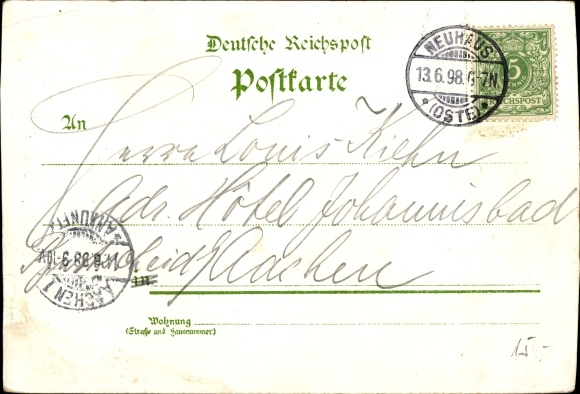 Deutsche Reichspost
Postkarte
NEUHAUS
13.6.98.6-7N.
*(OSTE)*
5
REICHSPOST
An
Herrn Louis Kiehn
Adr. Hôtel Johannisbad
Burtscheid/Aachen
in
ANKUNFT
14.6.98.9-10V.
AACHEN 1
Wohnung
(Straße und Hausnummer)
15.-